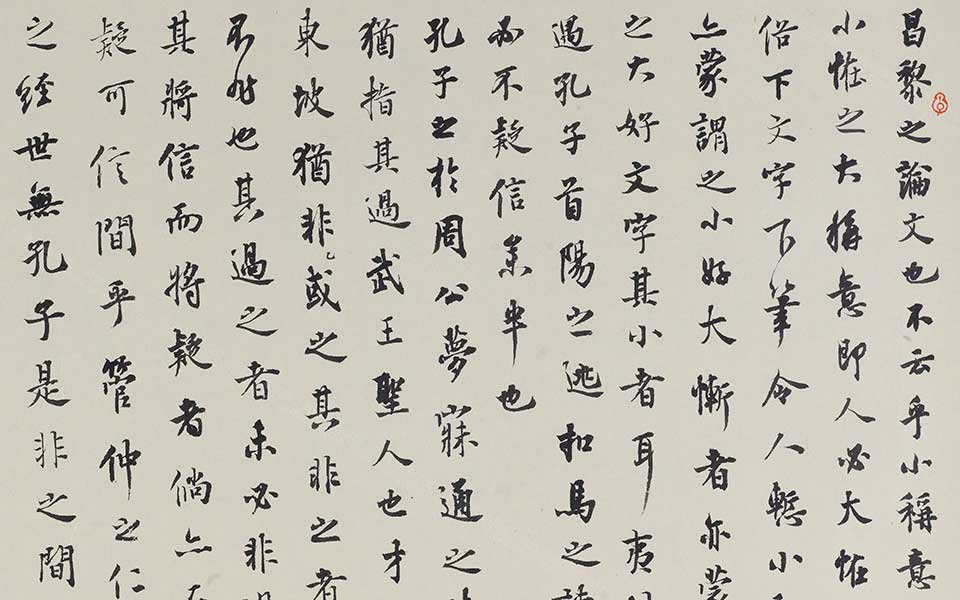 昌黎之論文也不云乎小稱意
小怪之大稱意即人必大怪
俗下文字下筆令人慙小
亦蒙謂之小好大慚者亦蒙
之大好文字其小者耳夷
過孔子首陽之逃扣馬之
必不疑信業半也
孔子之於周公夢寐通之
猶指其過武王聖人也才
東坡猶非之或之其非之者
不少也其過之者未必非
其將信而將疑者倘亦
疑可信間乎管仲之仁
之經世無孔子是非之間